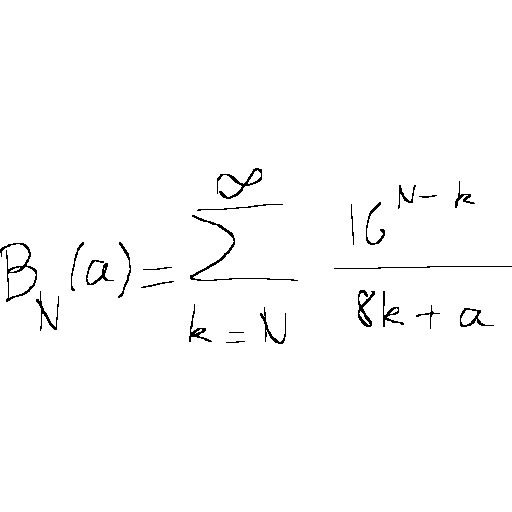 B_N(a) = \sum_{k=N}^{\infty} \frac{16^{N-k}}{8k+a}